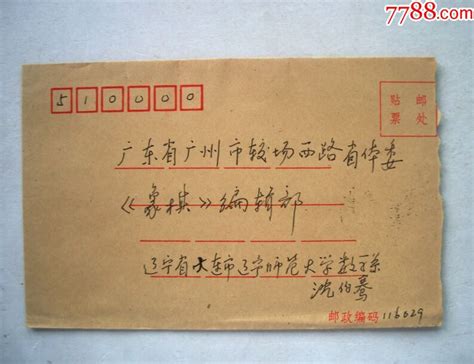 7788.com
510000
贴邮
票处
广东省广州市较场西路省体委
《象棋》编辑部
辽宁省大连市辽宁师范大学数学系
沈伯骞
邮政编码116029